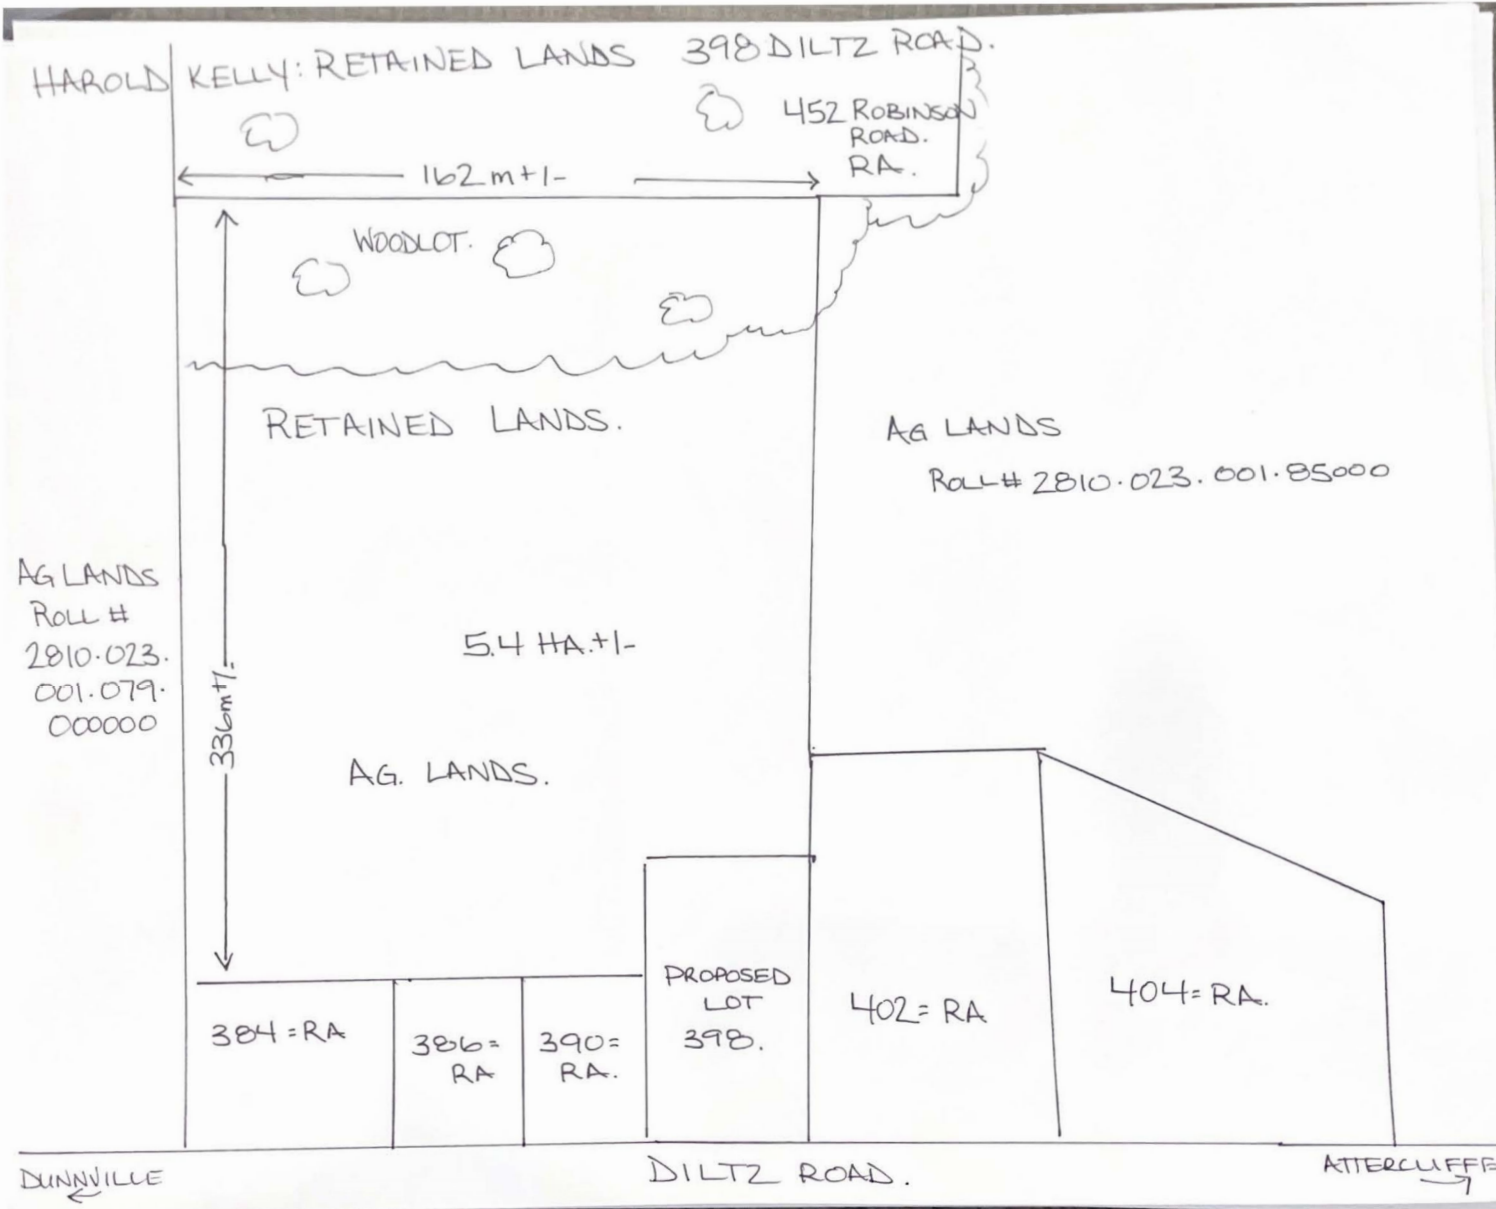 HAROLD KELLY: RETAINED LANDS 398 DILTZ ROAD.
452 ROBINSON
ROAD.
RA.
162 m+/-
WOODLOT.
RETAINED LANDS.
AG LANDS
ROLL# 2810.023.001.85000
AG LANDS
ROLL #
2810.023.
001.079.
000000
336m+/-
5.4 HA.+/-
AG. LANDS.
384=RA
386=
RA
390=
RA.
PROPOSED
LOT
398.
402=RA
404=RA.
DUNNVILLE
DILTZ ROAD.
ATTERCLIFFE